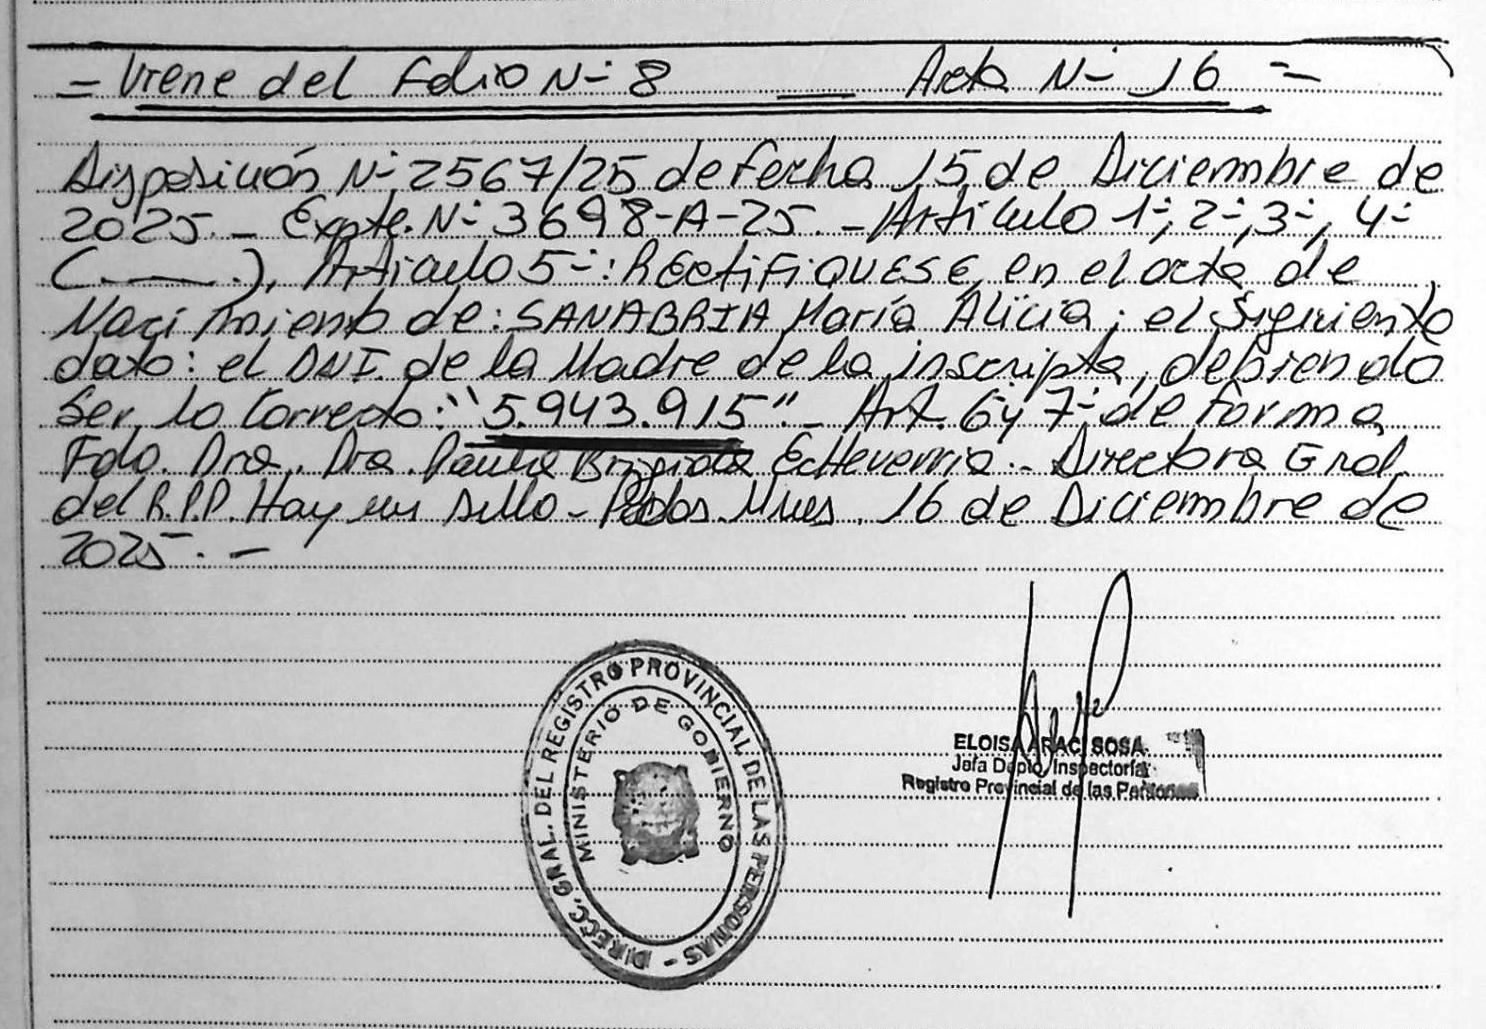 = Viene del Folio N- 8 — Acta N- 16 =
Disposición N- 2567/25 de fecha 15 de Diciembre de
2025. - Expte. N- 3698-A-25. - Artículo 1-, 2-, 3-, 4-
(____.), Artículo 5-: RECTIFIQUESE, en el acta de
Nacimiento de: SANABRIA María Alicia; el siguiente
dato: el DNI. de la Madre de la inscripta, debiendo
ser lo correcto: "5.943.915". - Art. 6 y 7- de forma
Fdo. Dra. Dra. Paula Brigida Echeverria - Directora Gral.
del R.P.P. Hay un sello - Pdas. Mnes. 16 de Diciembre de
2025. -
DIRECC. GRAL. DEL REGISTRO PROVINCIAL DE LAS PERSONAS -
MINISTERIO DE GOBIERNO
ELOISA ARACI SOSA
Jefa Dpto. Inspectoría
Registro Provincial de las Personas